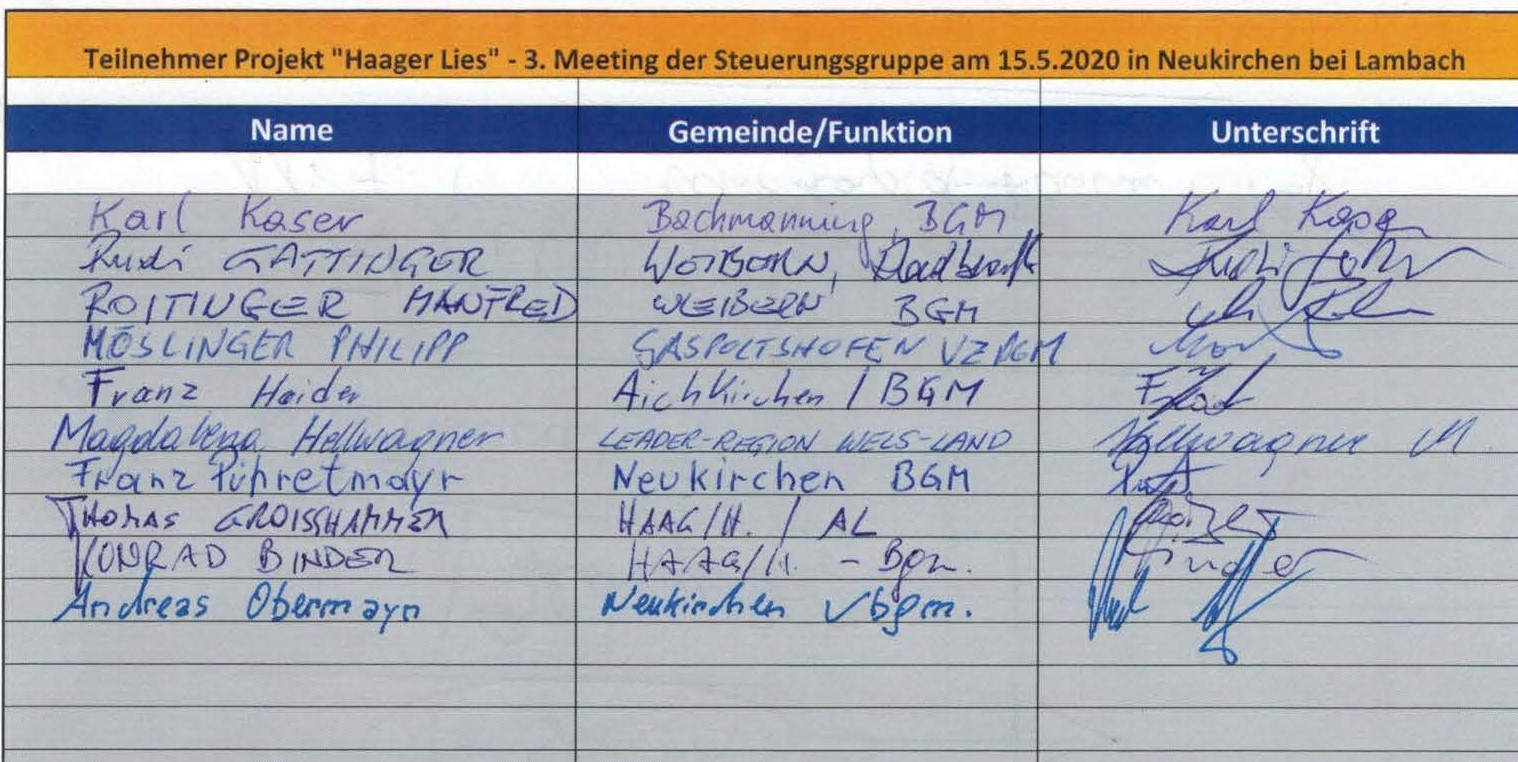 Teilnehmer Projekt "Haager Lies" - 3. Meeting der Steuerungsgruppe am 15.5.2020 in Neukirchen bei Lambach
Name Gemeinde/Funktion Unterschrift
Karl Kaser Bachmanning, BGM Karl Kaser
Rudi GATTINGER WEIBERN,
ROITINGER MANFRED WEIBERN BGM
MÖSLINGER PHILIPP GASPOLTSHOFEN VZBGM
Franz Haider Aichkirchen / BGM
Magdalena Hellwagner LEADER-REGION WELS-LAND Hellwagner M.
Franz Pühretmayr Neukirchen BGM
THOMAS GROISSHAMMER HAAG/H. / AL
KONRAD BINDER HAAG/H. - Bgm. Binder
Andreas Obermayr Neukirchen Vbgm.